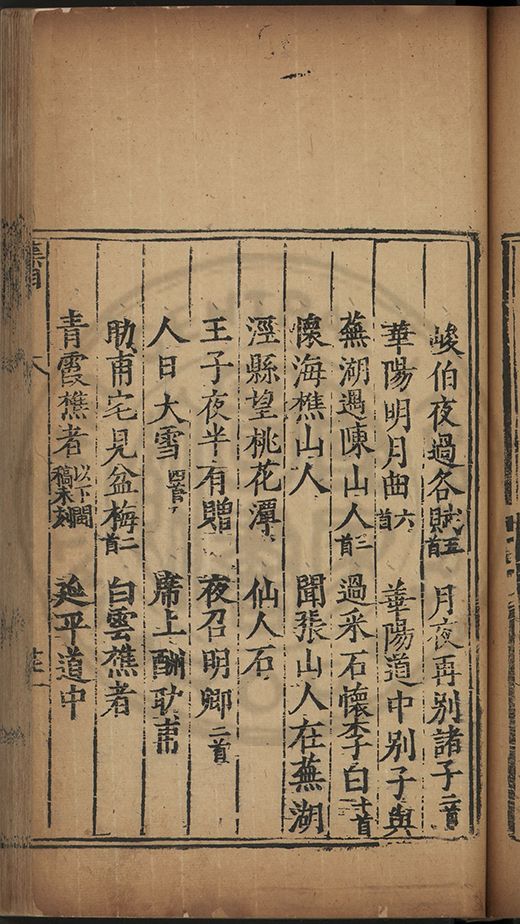 峻伯夜過各賦五首　月夜再別諸子二首
華陽明月曲六首　華陽道中別子與
蕪湖遇陳山人三首　過采石懷李白十首
懷海樵山人　聞張山人在蕪湖
涇縣望桃花潭　仙人石
王子夜半有贈　夜召明卿二首
人日大雪四首　席上酬耿甫
助甫宅見盆梅二首　白雲樵者
青霞樵者以下閩稿未刻　延平道中